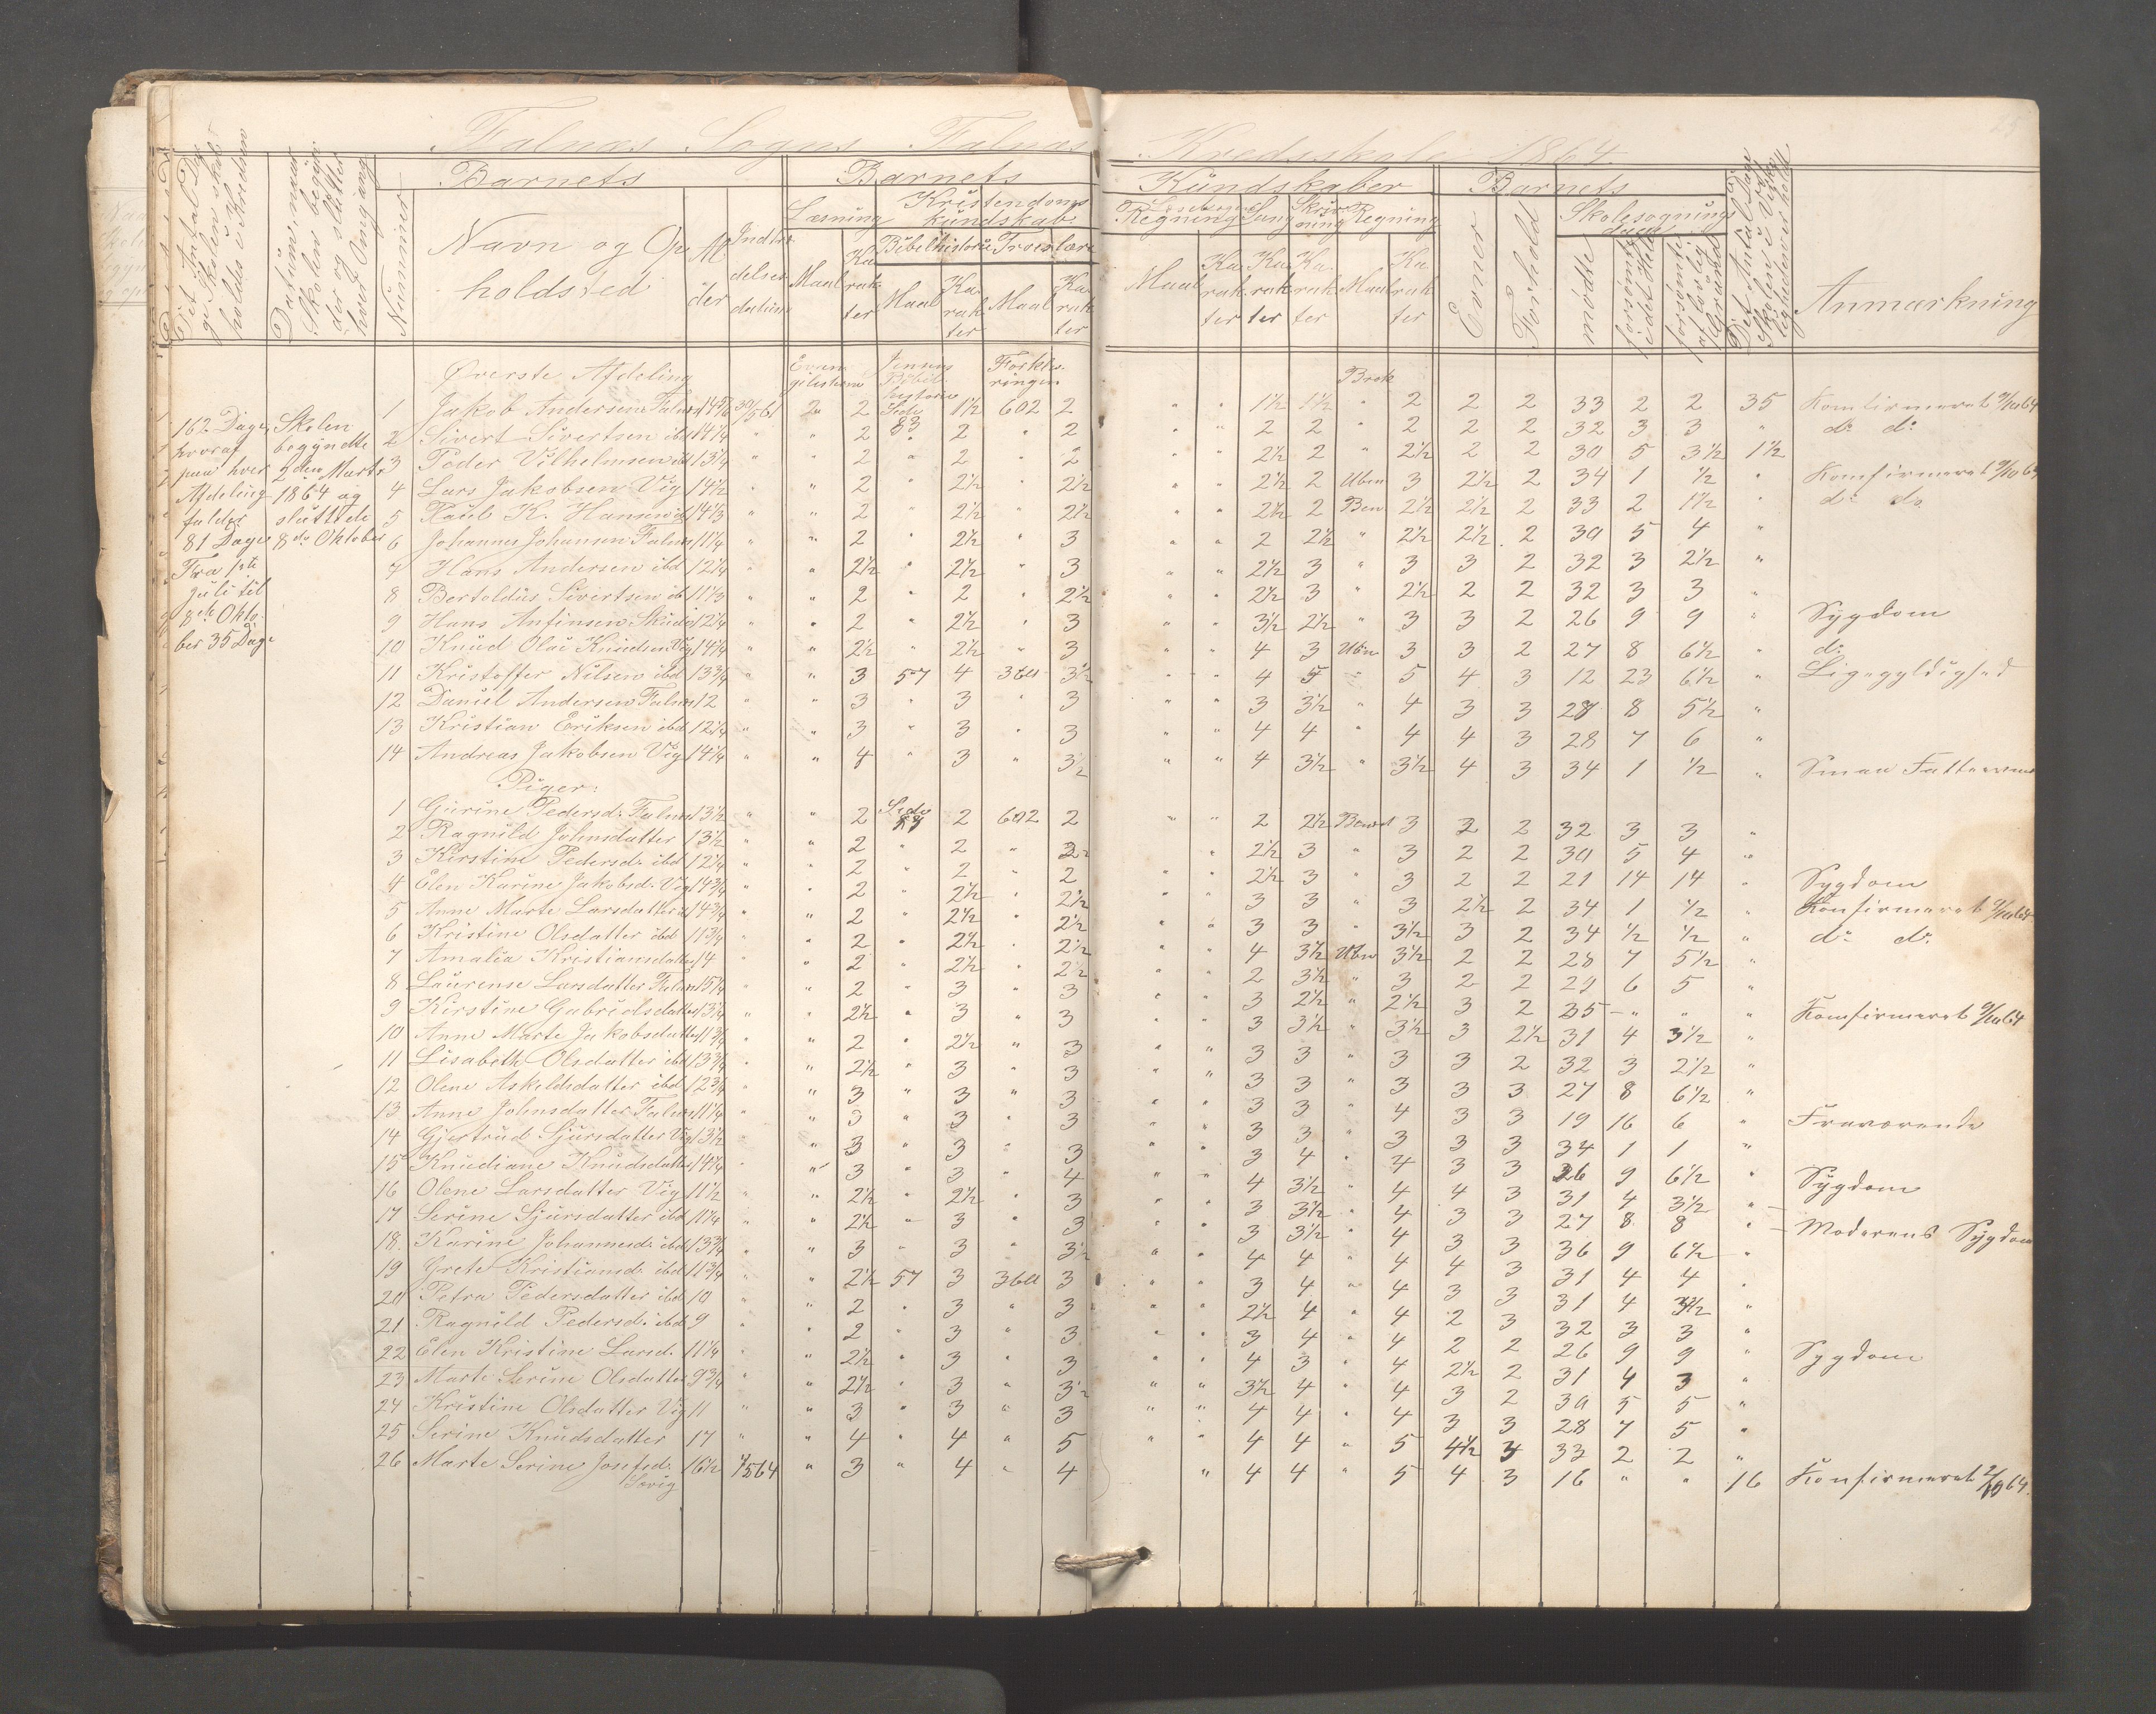 Falnæs Sogns Falnæs Kredsskole 1864.
Det Antal Dage Skolen skal holdes i Kredsen
Datum, naar Skolen begynder og slutter hver Omgang
Nummer
Barnets
Navn og Opholdsted
Alder
Indtrædelsesdatum
Barnets Kundskaber
Læsning
Maal
Karakter
Kristendomskundskab
Bibelhistorie
Maal
Karakter
Troeslære
Maal
Karakter
Regning
Maal
Karakter
Sang
Karakter
Skrivning
Karakter
Regning
Maal
Karakter
Barnets
Evner
Forhold
Skolesøgningsdage
mødte
forsømte i det Hele
forsømte af lovlig Grund
Det Antal Dage Skolen i Virkeligheden er holdt
Anmærkning
162 Dage, hvoraf paa hver Afdeling falder 81 Dage
Fra 1ste Juli til 8de Oktober 35 Dage
Skolen begyndte 2den Marts 1864 og sluttede 8de Oktober
Øverste Afdeling
Evangeliebøgerne
Jensens Bibelhistorie
Forklaringen
Brøk
1 Jakob Andersen Falnæs 14 3/4 30/5 61 " 2 Side 83 1½ 602 2 " " 1½ 1½ " 2 2 2 33 2 2 35 Konfirmeret 9/10 64
2 Sivert Sivertsen ibd 14¼ " " 2 " 2 " 2 " " 2 2 " 2 2 2 32 3 3 " do do
3 Peder Vilhelmsen ibd 13¼ " " 2 " 2 " 2 " " 2½ 2 " 2½ 2 2 30 5 3½ 1½
4 Lars Jakobsen Vig 14½ " " 2 " 2½ " 2½ " " 2½ 2 Uben 3 2½ 2 34 1 ½ " Konfirmeret 9/10 64
5 Paul K. Hansen ibd 14⅓ " " 2 " 2½ " 2½ " " 2½ 2 Ben 2½ 2½ 2 33 2 1½ " do do
6 Johannes Johansen Falnæs 11¼ " " 2 " 2½ " 3 " " 2 2½ " 2½ 2½ 2 30 5 4 "
7 Hans Andersen ibd 12¼ " " 2½ " 2½ " 3 " " 2½ 3 " 3 3 2 32 3 2½ "
8 Bertoldus Sivertsen ib 11⅓ " " 2 " 2 " 2½ " " 2½ 3 " 2½ 2 2 32 3 3 "
9 Hans Anfinsen Skude 12¼ " " 2 " 2½ " 3 " " 3½ 2½ " 3 3 2 26 9 9 " Sygdom
10 Knud Olai Knudsen Vig 14¼ " " 2½ " 2½ " 3 " " 4 3 Uben 3 3 2 27 8 6½ " do
11 Kristoffer Nilsen ibd 13¾ " " 3 57 4 360 3½ " " 4 5 " 5 4 3 12 23 6½ " Ligegyldighed
12 Daniel Andersen Falnæs 12 " " 3 " 3 " 3 " " 3 3½ " 4 3 3 28 8 5½ "
13 Kristian Eriksen ibd 12¼ " " 3 " 3 " 3 " " 4 4 " 4 4 3 28 7 6 "
14 Andreas Jakobsen Vig 14¼ " " 4 " 3 " 3½ " " 4 3½ " 3½ 4 3 34 1 ½ "
Piger:
1 Gurine Pedersd. Falnæs 13½ " " 2 Side 2 602 2 " " 2 2½ 3 2 2 32 3 3 "
2 Ragnild Johnsdatter 13½ " " 2 " 2 " " 2½ 3 " 3 2 2 30 5 4 "
3 Kirstine Pedersd. ibd 12¼ " " 2 " 2 " 2 " " 2½ 3 " 3 2 2 21 14 14 " Sygdom
4 Elen Karine Jakobsd. Vig 14¾ " " 2 " 2½ " 2½ " " 3 3 " 3 2½ 2 34 1 ½ " Konfirmeret 9/10 64
5 Anne Marte Larsdatter 14¾ " " 2 " 2½ " 2½ " " 3 3 " 3½ 3 2 34 ½ ½ " do do
6 Kristine Olsdatter ibd 11¾ " " 2 " 2½ " 2½ " " 4 3½ Uben 3½ 2 2 28 7 5½ "
7 Amalia Kristiansdatter 14 " " 2 " 2½ " 2½ " " 2 3½ " 3 2 2 29 6 5 "
8 Laurense Larsdatter Falnæs 15¼ " " 2 " 3 " 3 " " 3 2½ " 2½ 3 2 35 " " " Konfirmeret 9/10 64
9 Kirstine Gabrielsdatter 13¼ " " 2½ " 3 " 3 " " 3 3½ " 3½ 3 2½ 31 4 3½ "
10 Anne Marte Jakobsdatter 11¾ " " 2 " 2½ " 3 " " 3 3 " 3 3 2 32 3 2½ "
11 Lisabeth Olsdatter ibd 13¾ " " 2½ " 3 " 3 " " 3 3 " 3 3 3 27 8 6½ "
12 Olene Askeldsdatter ibd 12¾ " " 3 " 3 " 3 " " 3 3 " 4 3 3 19 16 6 " Fraværende
13 Anne Johnsdatter Falnæs 11¼ " " 3 " 3 " 3 " " 3 3 " 3 3 3 34 1 1 "
14 Gjertrud Sjursdatter Vig 13½ " " 3 " 3 " 3 " " 3 4 " 4 3 3 26 9 6½ " Sygdom
15 Knudiane Knudsdatter 14¼ " " 3 " 3 " 4 " " 4 3½ " 4 4 3 31 4 3½ "
16 Olene Larsdatter Vig 11½ " " 2½ " 2½ " 3 " " 3 3½ " 4 3 3 27 8 8 " Moderens Sygdom
17 Serine Sjursdatter ibd 11¼ " " 2½ " 3 " 3 " " 3 3½ " 4 3 3 36 9 6½ "
18 Karine Johannesd. ibd 13¾ " " 3 " 3 " 3½ " " 4 4 " 4 4 3 31 4 4 "
19 Grete Kristiansd. ibd 11¾ " " 2½ 57 3 360 3 " " 3 4 " 4 3 3 31 4 3½ "
20 Petra Pedersdatter ibd 10 " " 2 " 3 " 3 " " 2½ 4 " 4 2 3 32 3 3 "
21 Ragnild Pedersd. ibd 9 " " 2 " 3 " 3 " " 3 4 " 4 2 2 26 9 9 " Sygdom
22 Elen Kristine Larsd. 11¼ " " 2½ " 3 " 3 " " 4 3 " 4 2½ 2 31 4 3 "
23 Marte Serine Olsdatter 9¾ " " 2½ " 3 " 3½ " " 3½ 4 " 4 3 2 30 5 5 "
24 Kristine Olsdatter Vig 11 " " 3 " 3 " 3 " " 4 4 " 4 3 3 28 7 5 "
25 Serine Knudsdatter 17 " " 4 " 4 " 5 " " 4 4 " 5 4½ 3 33 2 2 "
26 Marte Serine Josefsd. 16½ 64 " 3 " 4 " 4 " 4 4 " 5 4 3 16 " " 16 Konfirmeret 64.